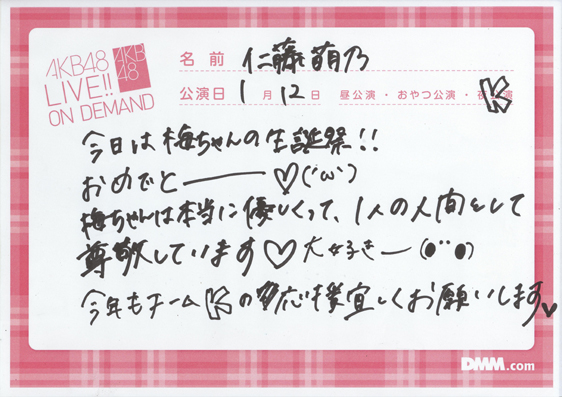 AKB48
LIVE!!
ON DEMAND
AKB
48
名前 仁藤萌乃
公演日 1月12日 昼公演・おやつ公演・夜公演
K
今日は梅ちゃんの生誕祭!!
おめでとーーー♡(´ω`)
梅ちゃんは本当に優しくって、1人の人間として
尊敬しています♡大好きー(●¨●)
今年もチームKの応援宜しくお願いします♥
DMM.com